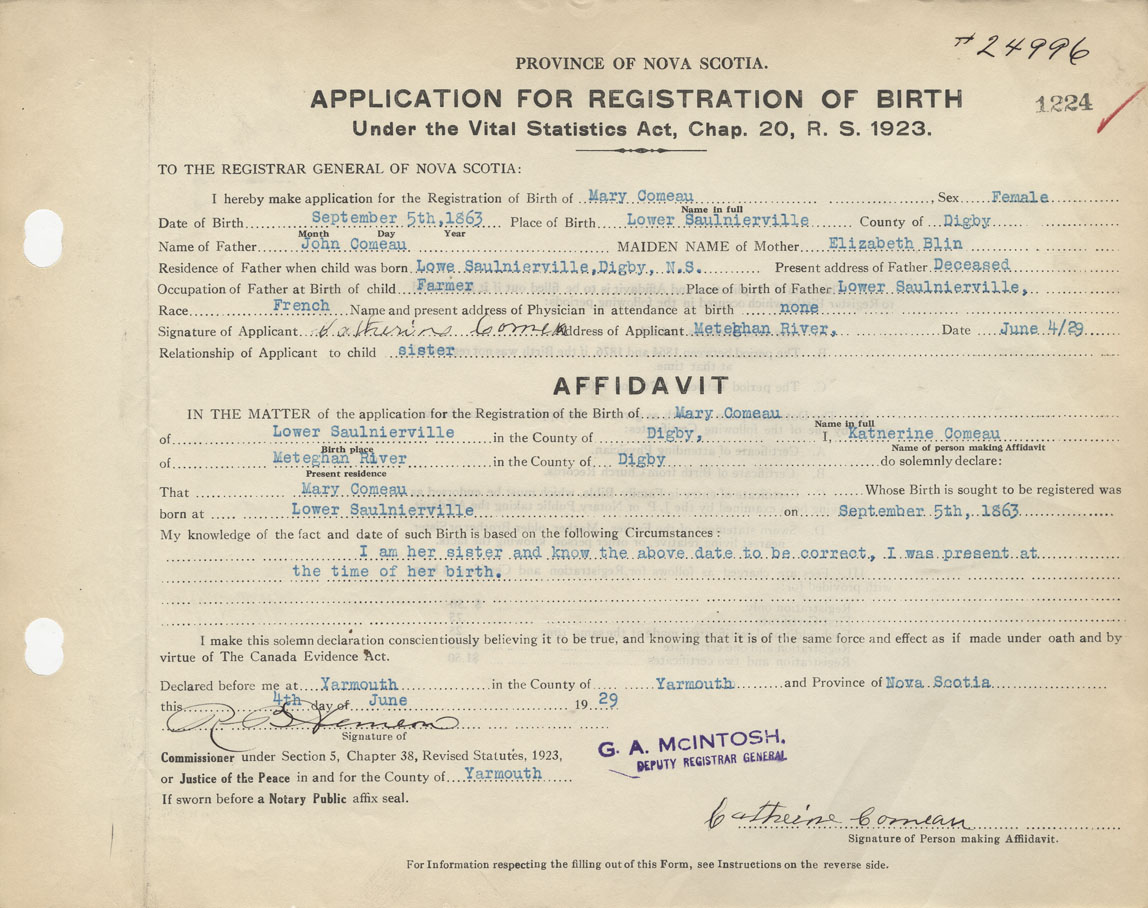 #24996
PROVINCE OF NOVA SCOTIA.
APPLICATION FOR REGISTRATION OF BIRTH
1224
Under the Vital Statistics Act, Chap. 20, R. S. 1923.
TO THE REGISTRAR GENERAL OF NOVA SCOTIA:
I hereby make application for the Registration of Birth of Mary Comeau Sex Female
Name in full
Date of Birth September 5th,1863 Place of Birth Lower Saulnierville County of Digby
Month Day Year
Name of Father John Comeau MAIDEN NAME of Mother Elizabeth Blin
Residence of Father when child was born Lowe Saulnierville,Digby, N.S. Present address of Father Deceased
Occupation of Father at Birth of child Farmer Place of birth of Father Lower Saulnierville,
Race French Name and present address of Physician in attendance at birth none
Signature of Applicant Catherine Comeau Address of Applicant Meteghan River, Date June 4/29
Relationship of Applicant to child sister
AFFIDAVIT
IN THE MATTER of the application for the Registration of the Birth of Mary Comeau
Name in full
of Lower Saulnierville in the County of Digby, I, Katnerine Comeau
Birth place Name of person making Affidavit
of Meteghan River in the County of Digby do solemnly declare:
Present residence
That Mary Comeau Whose Birth is sought to be registered was
born at Lower Saulnierville on September 5th, 1863
My knowledge of the fact and date of such Birth is based on the following Circumstances :
I am her sister and know the above date to be correct, I was present at
the time of her birth.
I make this solemn declaration conscientiously believing it to be true, and knowing that it is of the same force and effect as if made under oath and by
virtue of The Canada Evidence Act.
Declared before me at Yarmouth in the County of Yarmouth and Province of Nova Scotia
this 4th day of June 19 29
Signature of
Commissioner under Section 5, Chapter 38, Revised Statutes, 1923,
or Justice of the Peace in and for the County of Yarmouth
If sworn before a Notary Public affix seal.
G. A. McINTOSH.
DEPUTY REGISTRAR GENERAL
Catherine Comeau
Signature of Person making Affidavit.
For Information respecting the filling out of this Form, see Instructions on the reverse side.